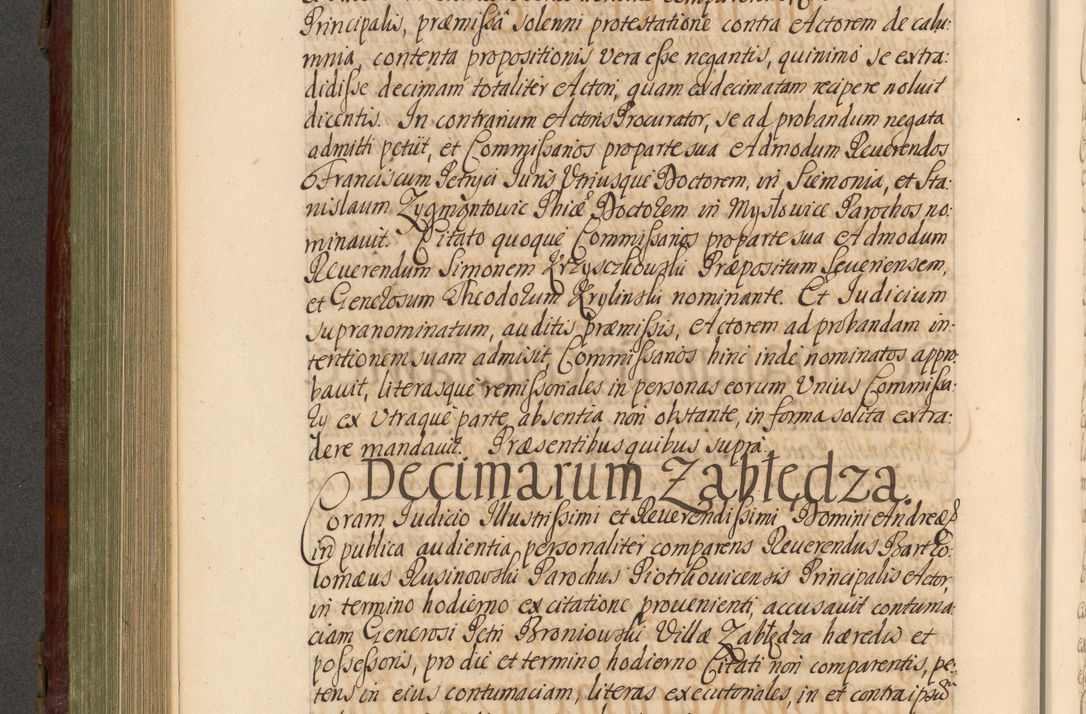 Principalis, præmissâ solenni protestatione contra Actorem de calu:
mnia, contenta propositionis vera esse negantis, quinimo se extra:
didisse decimam totaliter Actori, quam exdecimatam recipere noluit
dicentis. In contrarium Actoris Procurator, se ad probandum negata
admitti petiit, et Commissarios pro parte sua Admodum Reuerendos
Franciscum Petryci Juris Vtriusque Doctorem, in Siemonia, et Sta:
nislaum Zygmontowic Phiæ Doctorem in Mysłowice Parochos no:
minauit. Citato quoque Commissarios pro parte sua Admodum
Reuerendum Simonem Krzysczkowski Præpositum Seueriensem,
et Generosum Theodorum Krylinski nominante. Et Judicium
supranominatum, auditis præmissis, Actorem ad probandam in:
tentionem suam admisit, Commissarios hinc inde nominatos appro:
bauit, literasque remissoriales in personas eorum Vnius Commissa:
rij ex Vtraque parte, absentia non obstante, in forma solita extra:
dere mandauit. Præsentibus quibus supra.
Decimarum Zabłędza.
Coram Judicio Illustrissimi et Reuerendissimi Domini Andreæ
in publica audientia personaliter comparens Reuerendus Bartho:
lomæus Rusinowski Parochus Piotrkouicensis Principalis Actor,
in termino hodierno ex citatione prouenienti, accusauit contuma:
ciam Generosi Petri Broniowski Villæ Zabłędza hæredis et
possessoris, pro die et termino hodierno Citati non comparentis, pe:
tens in eius contumaciam, literas executoriales, in et contra ipsum